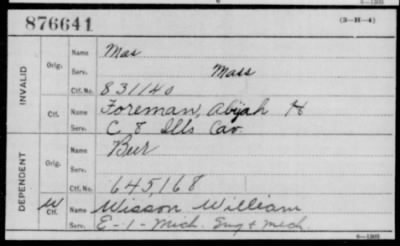 876641 (3-H-4)
INVALID
Orig. Name Mas
Serv. Mass
Ctf. No. 831140
Ctf. Name Foreman, Abijah H
Serv. C 8 Ills Cav.
DEPENDENT
Orig. Name Bur
Serv.
Ctf. No. 645,168
W Ctf. Name Wisson William
Serv. E-1-Mich. Eng & Mech.
6-1303